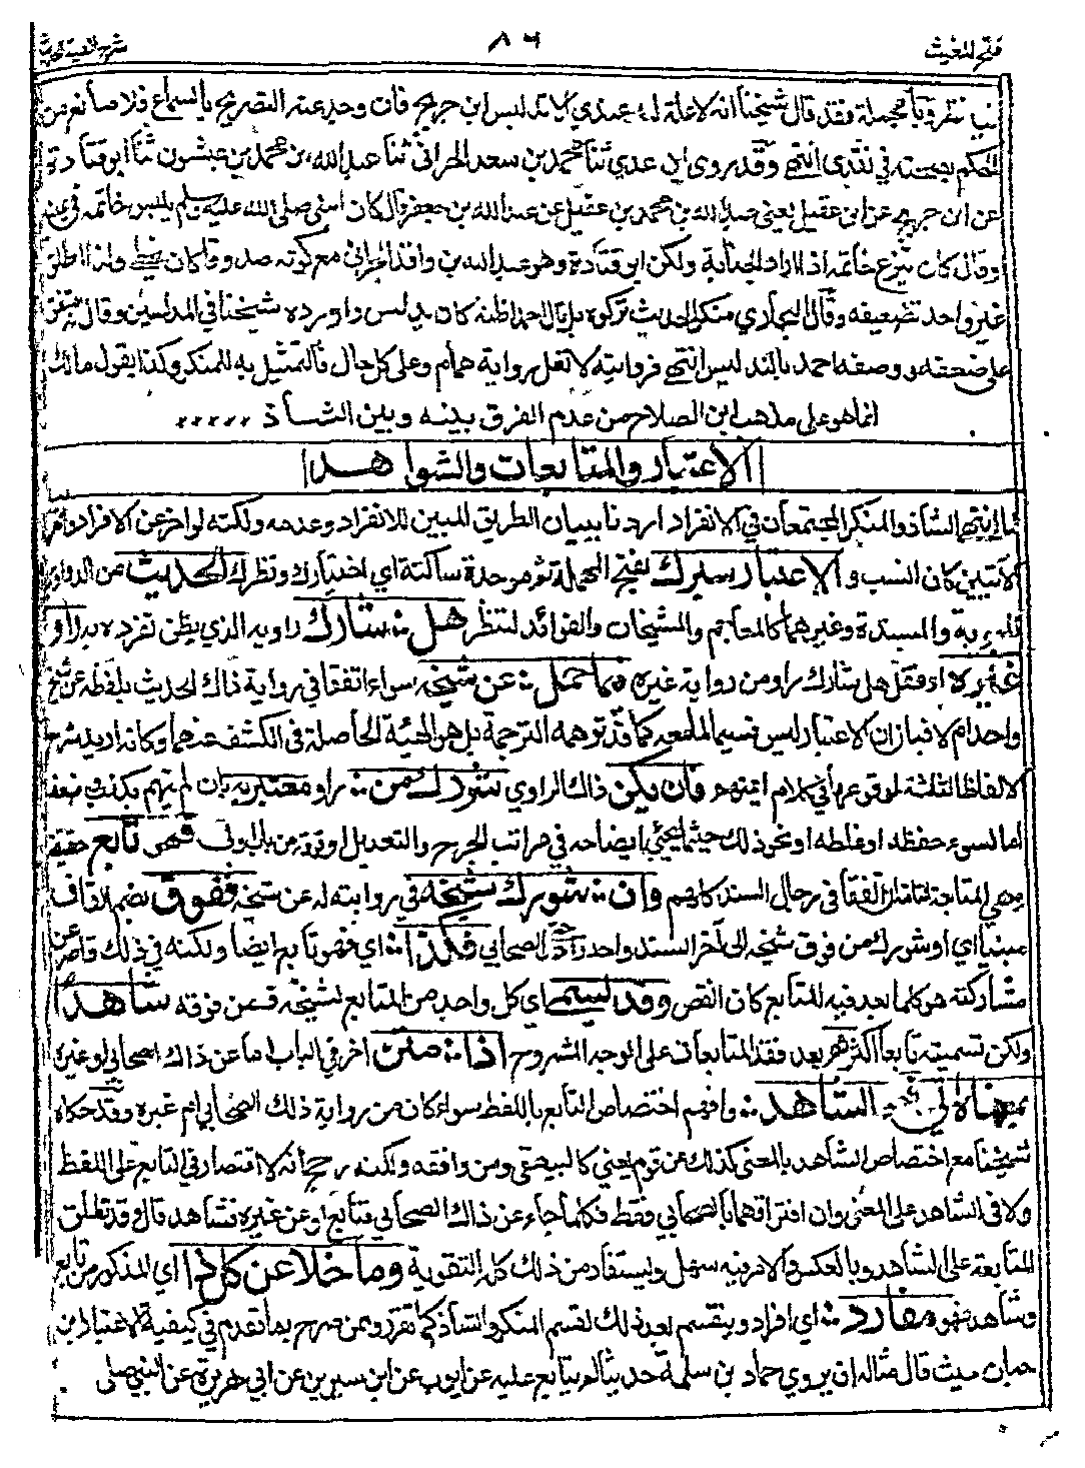 فتح المغيث
٨٦
شرح الفية الحديث
نقروبأ بجملة فقد قال شيخنا انه لا علة له عندي الا تدليس ابن جريج فان وجد عنه التصريح بالسماع فلا مانع من
الحكم بصحته في نقدي انتهى وقد روى ابن عدي ثنا محمد بن سعد الحراني ثنا عبد الله بن محمد بن عيشون ثنا ابو قتادة
عن ابن جريج عن ابن عقيل يعني عبد الله بن محمد بن عقيل عن عبد الله بن جعفر قال كان النبي صلى الله عليه وسلم يلبس خاتمه في يمينه
وقال كان ينزع خاتمه اذا اراد الجنابة ولكن ابو قتادة وهو عبد الله بن واقد الحراني مع كونه صدوقا كان يخطئ ولذا اطلق
غير واحد تضعيفه وقال البخاري منكر الحديث تركوه بل قال احمد اظنه كان يدلس واورده شيخنا في المدلسين وقال متفق
على ضعفه ووصفه احمد بالتدليس انتهى فروايته لا تعل رواية همام وعلى كل حال فالتمثيل به للمنكر وكذا بقول مالك
انما هو على مذهب ابن الصلاح من عدم الفرق بينه وبين الشاذ
الاعتبار والمتابعات والشواهد
لما انتهى الشاذ والمنكر المجتمعان في الانفراد اردنا ببيان الطريق المبين للانفراد وعدمه ولكنه لو اخر عن الافراد والغريب
الآتيين كان انسب والاعتبار سبرك بفتح المهملة ثم موحدة ساكنة اي اختبارك ونظرك الحديث من الدواوين
المبوبة والمسندة وغيرهما كالمعاجم والمشيخات والفوائد لتنظر هل شارك راويه الذي يظن تفرده به راو
غيره او فقل هل شارك راو من رواية غيره فيما حمل عن شيخه سواء اتفقا في رواية ذاك الحديث بلفظه عن شيخ
واحد ام لا فبان ان الاعتبار ليس قسيما لما معه كما قد توهمه الترجمة بل هو الهيئة الحاصلة في الكشف عنهما وكانه اريد شرح
الالفاظ الثلاثة لوقوعها في كلام ائمتهم فان يكن ذاك الراوي شورك من راو معتبر به بان لم يتهم بكذب وضعف
اما لسوء حفظه او غلطه او نحو ذلك حيثما يجئ ايضاحه في مراتب الجرح والتعديل او ثقة من باب اولى فهو تابع حقيقة
وهي المتابعة التامة ان اتفقا في رجال السند كلهم وان شورك شيخه في روايته له عن شيخه ففوق بضم القاف
مبنيا اي او شورك من فوق شيخه الى آخر السند واحدا واحدا حتى الصحابي فكذا اي فهو تابع ايضا ولكنه في ذلك قاصر عن
مشاركته هو كلما بعد فيه المتابع كان انقص وقد يسمى اي كل واحد من المتابع لشيخه فمن فوقه شاهدا
ولكن تسميته تابعا اكثر ثم بعد فقد المتابعات على الوجه المشروح اذا متن اخر في الباب اما عن ذاك الصحابي او غيره
بمعناه اتى فالشاهد وافهم اختصاص التابع باللفظ سواء كان من رواية ذلك الصحابي ام غيره وقد حكاه
شيخنا مع اختصاص الشاهد بالمعنى كذلك عن قوم يعني كالبيهقي ومن وافقه ولكنه رجح انه لا اقتصار في التابع على اللفظ
ولا في الشاهد على المعنى وان افتراقهما بالصحابي فقط فكلما جاء عن ذاك الصحابي فتابع او عن غيره فشاهد قال وقد تطلق
المتابعة على الشاهد وبالعكس والامر فيه سهل ويستفاد من ذلك كله التقوية وما خلا عن كل ذا اي المذكور من تابع
وشاهد فهو مفارد اي افراد وينقسم بعد ذلك لقسمي المنكر والشاذ كما تقرر وممن صرح بما تقدم في كيفية الاعتبار ابن
حبان حيث قال مثاله ان يروي حماد بن سلمة حديثا لم يتابع عليه عن ايوب عن ابن سيرين عن ابي هريرة عن النبي صلى